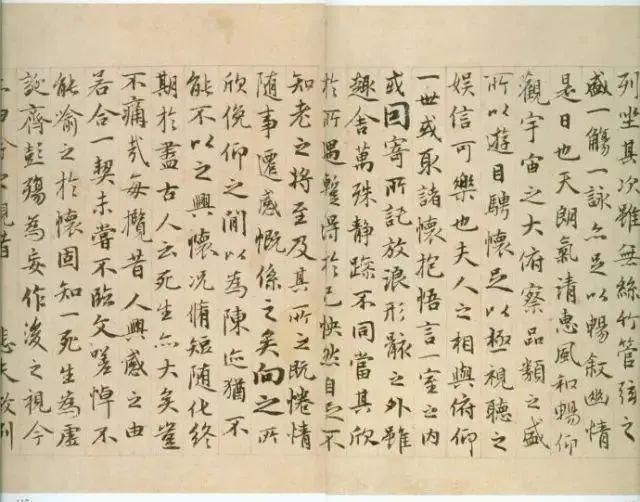 列坐其次雖無絲竹管弦之
盛一觴一詠亦足以暢敘幽情
是日也天朗氣清惠風和暢仰
觀宇宙之大俯察品類之盛
所以遊目騁懷足以極視聽之
娛信可樂也夫人之相與俯仰
一世或取諸懷抱悟言一室之內
或因寄所託放浪形骸之外雖
趣舍萬殊靜躁不同當其欣
於所遇蹔得於己怏然自足不
知老之將至及其所之既惓情
隨事遷感慨係之矣向之所
欣俛仰之閒以為陳迹猶不
能不以之興懷況脩短隨化終
期於盡古人云死生亦大矣豈
不痛哉每攬昔人興感之由
若合一契未嘗不臨文嗟悼不
能喻之於懷固知一死生為虛
誕齊彭殤為妄作後之視今
由今之視昔悲夫故列